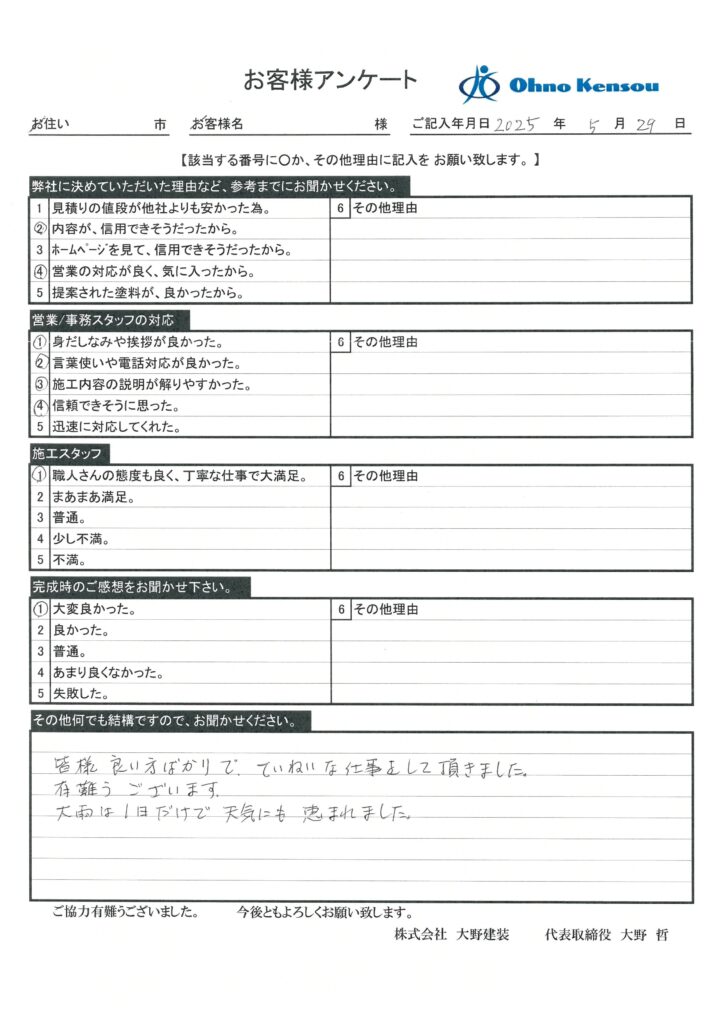 お客様アンケート
Ohno Kensou
お住い 市 お客様名 様 ご記入年月日 2025 年 5 月 29 日
【該当する番号に〇か、その他理由に記入を お願い致します。】
弊社に決めていただいた理由など、参考までにお聞かせください。
1 見積りの値段が他社よりも安かった為。 6 その他理由
② 内容が、信用できそうだったから。
3 ホームページを見て、信用できそうだったから。
④ 営業の対応が良く、気に入ったから。
5 提案された塗料が、良かったから。
営業/事務スタッフの対応
① 身だしなみや挨拶が良かった。 6 その他理由
② 言葉使いや電話対応が良かった。
③ 施工内容の説明が解りやすかった。
④ 信頼できそうに思った。
5 迅速に対応してくれた。
施工スタッフ
① 職人さんの態度も良く、丁寧な仕事で大満足。 6 その他理由
2 まあまあ満足。
3 普通。
4 少し不満。
5 不満。
完成時のご感想をお聞かせ下さい。
① 大変良かった。 6 その他理由
2 良かった。
3 普通。
4 あまり良くなかった。
5 失敗した。
その他何でも結構ですので、お聞かせください。
皆様 良い方ばかりで、ていねいな仕事をして頂きました。
有難うございます。
大雨は1日だけで天気にも恵まれました。
ご協力有難うございました。 今後ともよろしくお願い致します。
株式会社 大野建装 代表取締役 大野 哲